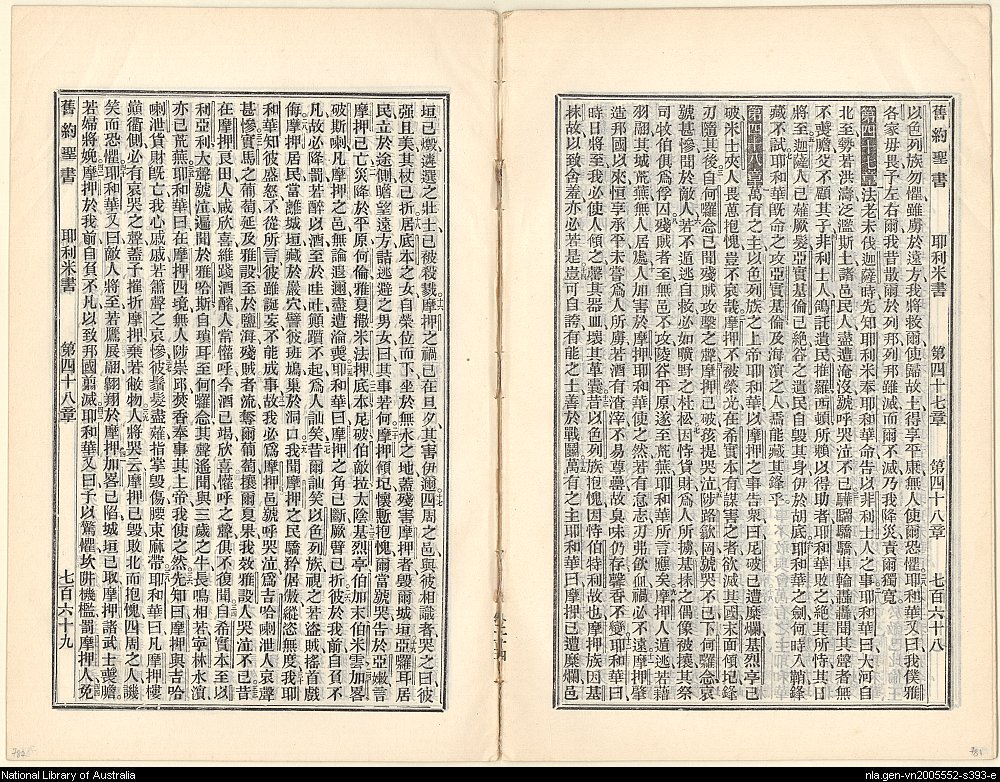 舊約聖書 耶利米書 第四十七章 第四十八章 七百六十八
以色列族勿懼雖虜於遠方我將救爾使歸故土得享平康無人使爾恐懼耶和華又曰我僕雅
各家毋畏予左右爾我昔散爾於列邦列邦雖滅而爾不滅乃我降災責爾獨寬
第四十七章法老未伐迦薩時先知耶利米奉耶和華命告以非利士人之事耶和華曰大河自
北至勢若洪濤泛濫斯土諸邑民人盡遭淹沒號呼哭泣不已驊騮驕驕車輪轟轟聞其聲者無
不喪膽父不顧其子非利士人鴻託遺民推羅西頓所賴以得助者耶和華敗之絕其所恃其日
將至迦薩人已薙厥髮亞實基倫已絕谷之遺民自毀其身伊於胡底耶和華之劍何時入鞘鋒
藏不試耶和華既命之攻亞實基倫及海濱之人焉能藏其鋒乎
第四十八章萬有之主以色列族之上帝耶和華以摩押之事告衆曰尼破已遭糜爛基烈亭已
破米士夾人畏葸抱愧豈不哀哉摩押不被榮光在希實本有謀害之者欲滅其國末面傾圮鋒
刃隨其後自何羅念已聞殘賊攻擊之聲摩押已破孩提哭泣陟路歆岡號哭不已下何羅念哀
號甚慘聞於敵人若不遁逃自救必如曠野之杜松因恃貨財爲人所擄基抹之偶像被攘其祭
司牧伯俱爲俘囚殘賊者至無邑不攻陵谷平原遂至荒蕪耶和華所言應矣摩押人遁逃若藉
羽翮其城荒蕪無人居處人加害於摩押耶和華使之然若有怠志刃弗飲血禍必不遠摩押肇
造邦國以來恒享承平未嘗爲人所虜若酒有渣滓不易尊罍故臭味仍存馨香不變耶和華曰
時日將至我必使人傾之罄其器皿壞其革囊昔以色列族抱愧因恃伯特利故也摩押族因基
抹故以致含羞亦必若是豈可自誇有能之士善於戰鬬萬有之主耶和華曰摩押已遭糜爛邑
垣已燬遴選之壯士已被殺戮摩押之禍已在旦夕其害伊邇四周之邑與彼相識者哭之曰彼
强且美其杖已折居底本之女自榮位而下坐於無水之地蓋殘害摩押者毀爾城垣亞囉耳居
民立於途側瞻望遠方詰逃避之男女曰其事若何摩押傾圮懷慙抱愧爾當號哭告於亞嫩言
摩押已亡災降於平原何倫雅夏撒米法押底本尼破伯敵拉太陰基烈亭伯加末伯米雲加畧
破斯喇凡摩押之邑無論遐邇盡遭淪喪耶和華曰摩押之角已斷厥臂已折彼於我前自負不
凡故必降罰若醉以酒至於哇吐顚躓不起爲人訕笑昔爾訕笑以色列族視之若盜賊搖首戲
侮摩押居民當離城垣藏於巖穴譬彼班鳩巢於洞口我聞摩押之民驕矜倨傲縱恣無度我耶
和華知彼盛怒不從所言彼雖誕妄不能成事故我必爲摩押邑號呼哭泣爲吉哈喇泄人哀聲
甚慘實馬之葡萄延及雅設至於鹽海殘賊者流奪爾葡萄攘爾夏果我效雅設人哭泣不已昔
在摩押艮田人咸欣喜維踐酒醡人常懽呼今酒已竭欣喜懽呼之聲俱不復聞自希實本至以
利亞利大聲號泣遍聞於雅哈斯自瑣耳至何羅念其聲遙聞與三歲之牛長鳴相若寧林水濱
亦已荒蕪耶和華曰在摩押四境無人陟崇邱焚香奉事其上帝我使之然先知曰摩押與吉哈
喇泄貨財旣亡我心戚戚若簫聲之哀慘彼鬚髮盡薙指掌毀傷腰束麻帶耶和華曰凡摩押樓
巔衢側必有哀哭之聲蓋予摧折摩押棄若敝物人將哭云摩押已毀敗北而抱愧四周之人譏
矣而恐懼耶和華又曰敵人將至若鷹展翮翱翔於摩押加畧已陷城垣已取摩押諸武士喪膽
若婦將娩摩押於我前自負不凡以致邦國翦滅耶和華又曰予以驚懼坎阱機檻罰摩押人免
舊約聖書 耶利米書 第四十八章 七百六十九
卷二十四
782
781
National Library of Australia
nla.gen-vn2005552-s393-e